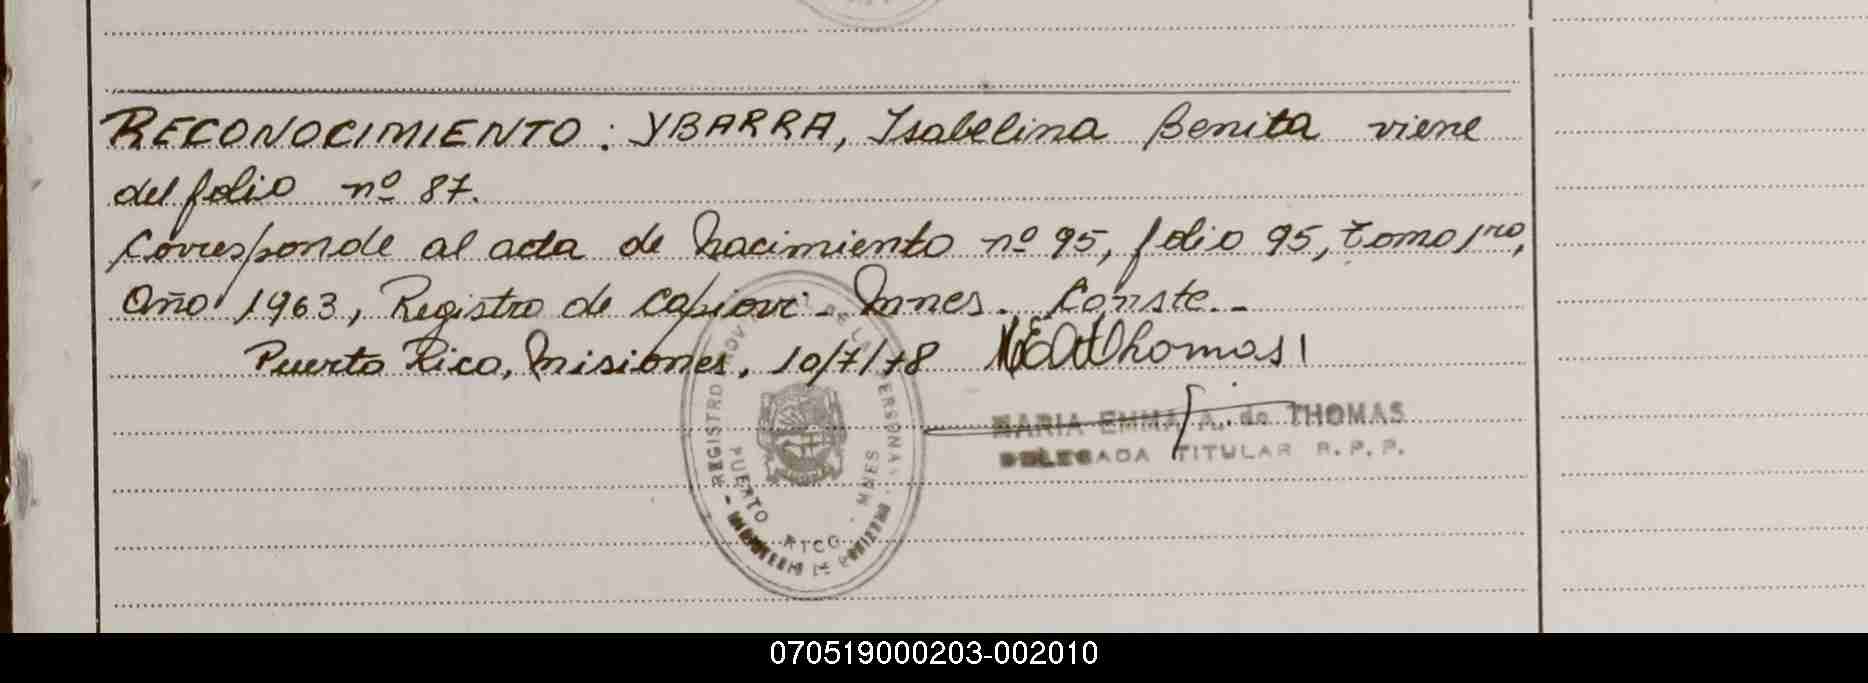 RECONOCIMIENTO: YBARRA, Isabelina Benita viene
del folio nº 87.
Corresponde al acta de Nacimiento nº 95, folio 95, tomo 1ro,
Año 1963, Registro de Capiovi - Mnes. Conste.-
Puerto Rico, Misiones, 10/7/78 MEAdThomas
MARIA EMMA A. de THOMAS
DELEGADA TITULAR R. P. P.
REGISTRO PROVINCIAL DE LAS PERSONAS
PUERTO RICO - MNES
070519000203-002010